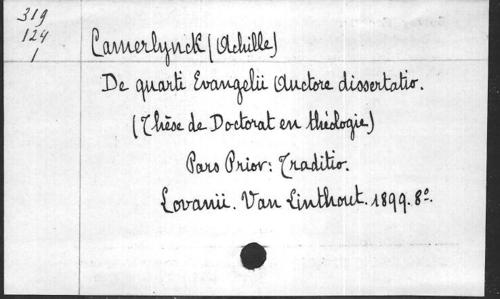 319
124
1
Camerlynck (Achille)
De quarti Evangelii Auctore dissertatio.
(Thèse de Doctorat en théologie)
Pars Prior: Traditio.
Lovanii. Van Linthout. 1899. 8º.